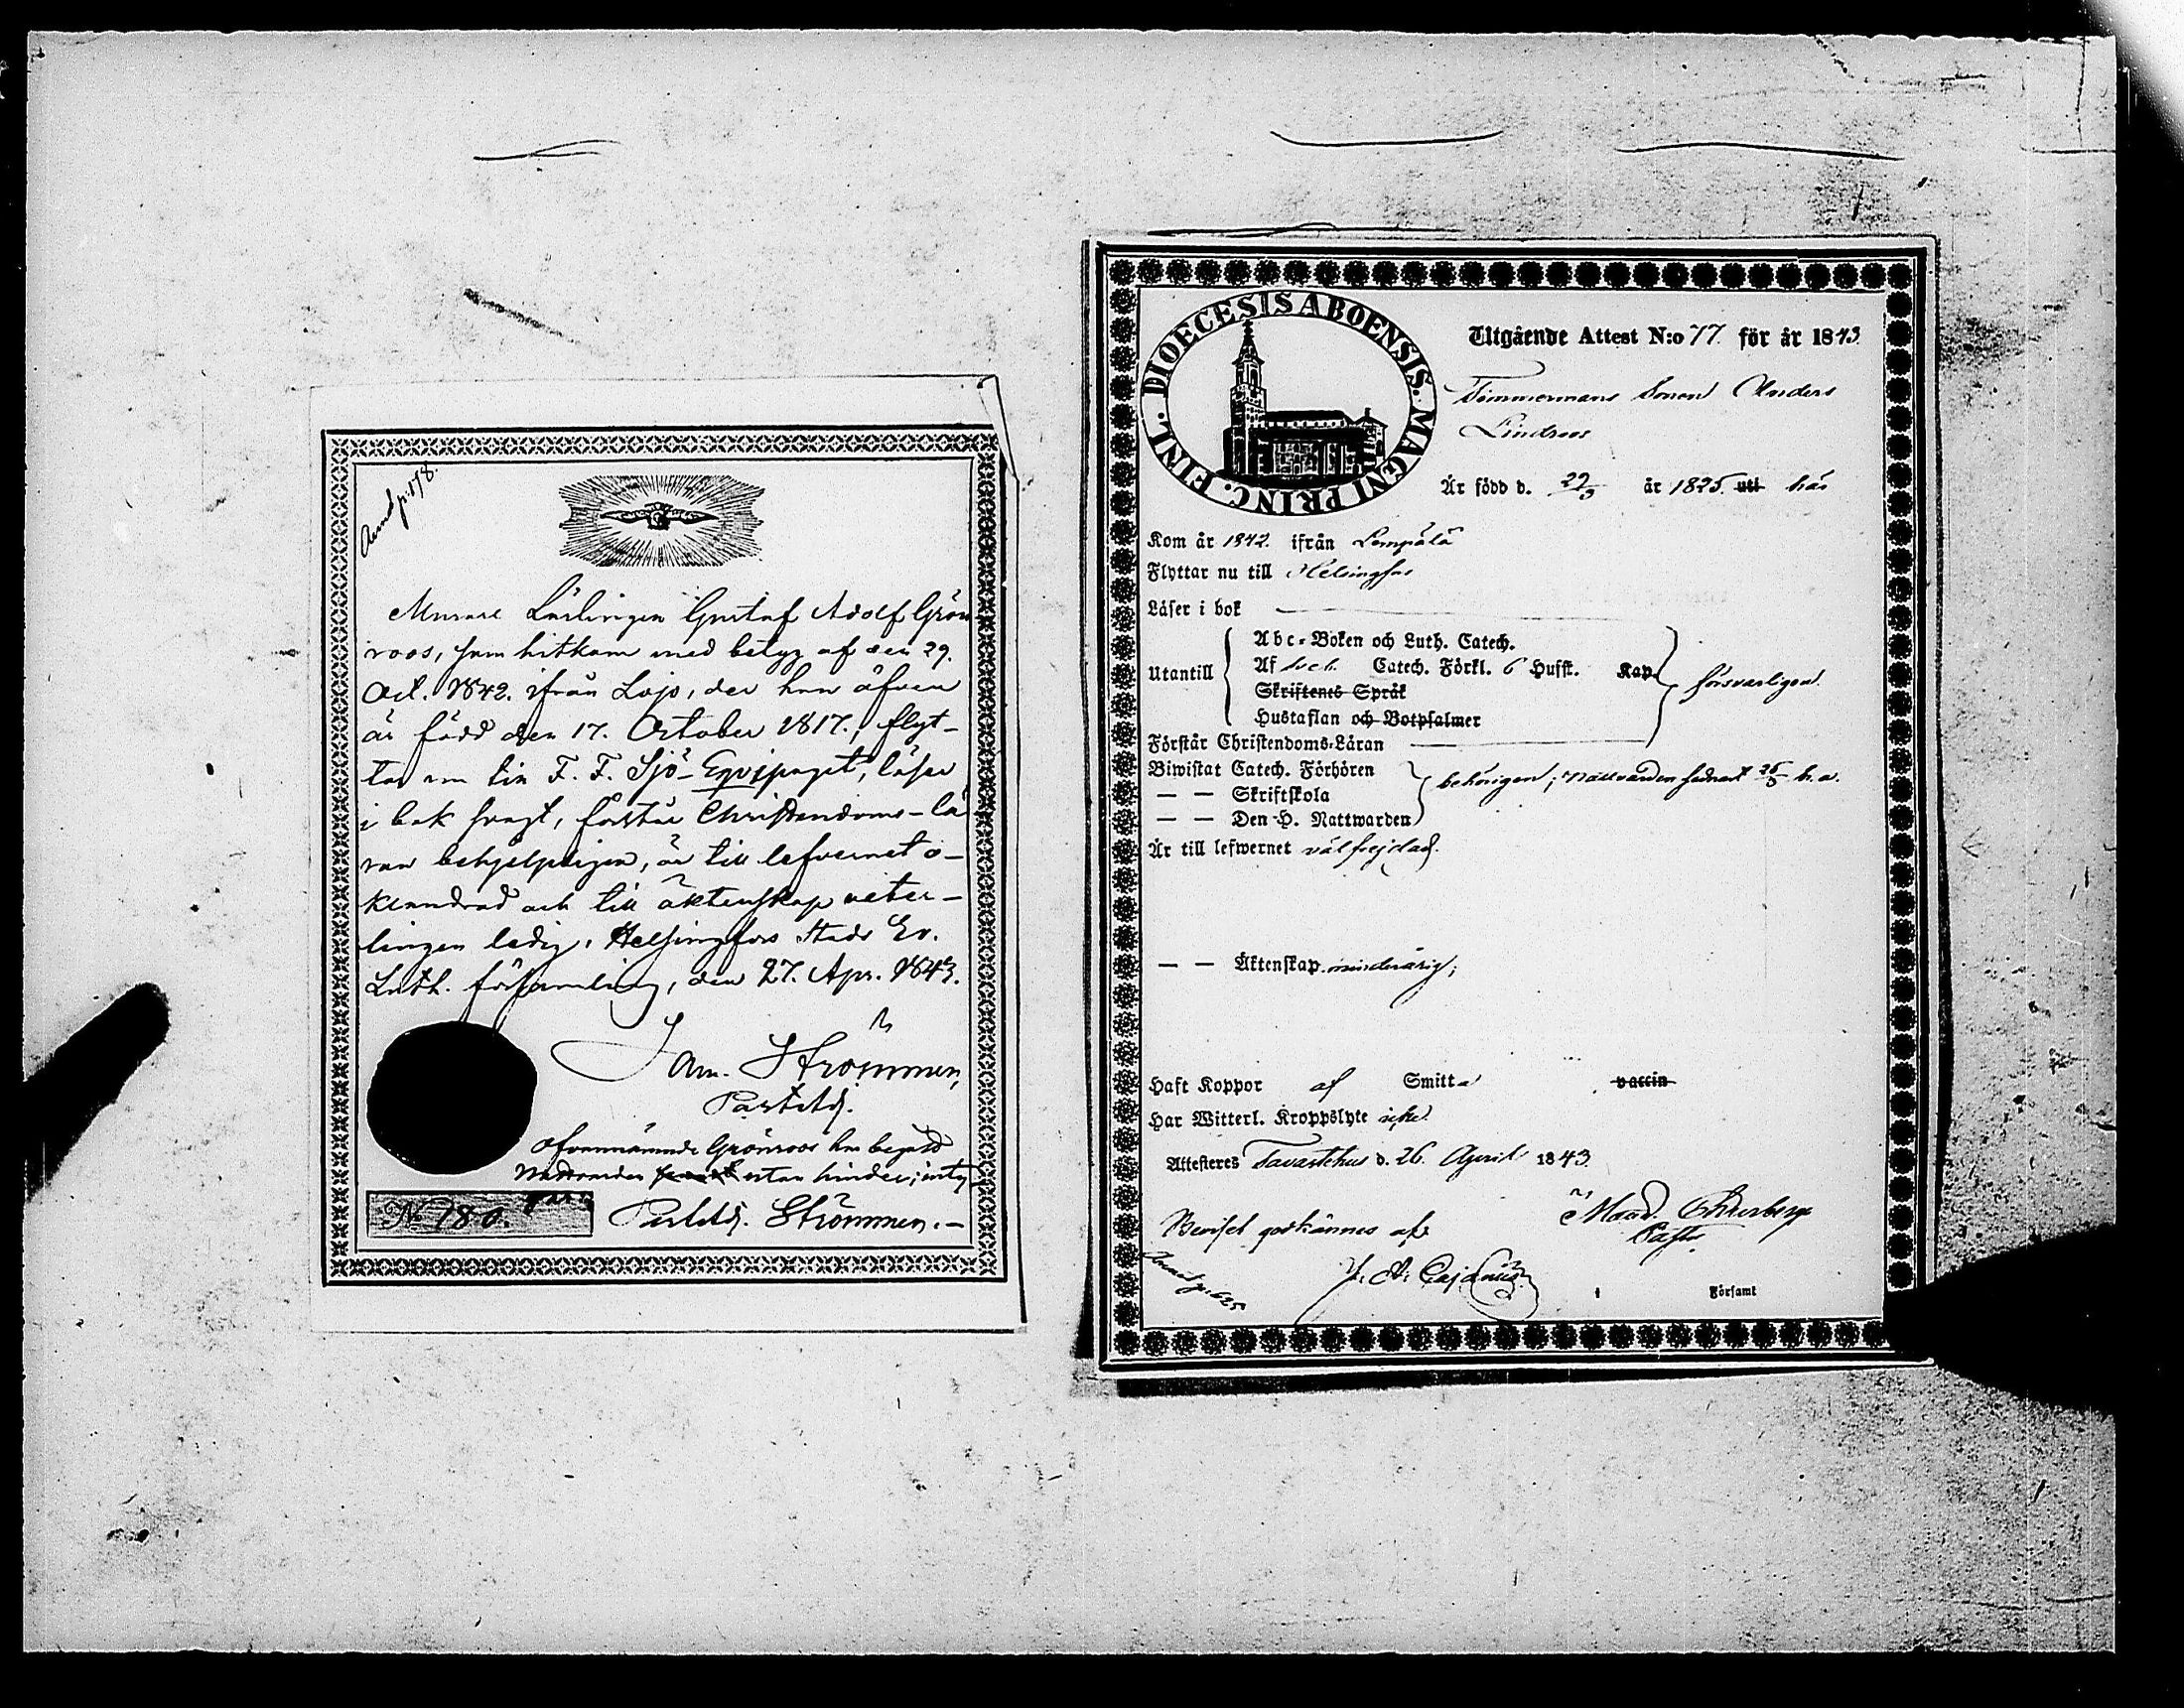 Annd p. 178.
Murare Lärlingen Gustaf Adolf Grön-
roos, som hitkom med betyg af den 29.
Oct. 1842. ifrån Lojo, der han äfven
är född den 17. October 1817., flyt-
tar nu till F. F. Sjö-Equipaget, läser
i bok svagt, förstår Christendoms-lä-
ran behjelpligen, är till lefvernet o-
klandrad och till äktenskap veter-
ligen ledig. Helsingfors Stads Ev.
Luth. församling, den 27. Apr. 1843.
Strömmer,
Ofvannämnde Grönroos har begått
Nattvarden utan hinder; intyg
No 180.
Strömmer.
DIOECESIS ABOENSIS. MAGNI PRINC. FINL.
Utgående Attest N:o 77. för år 1843.
Timmermans Sonen Anders
Lindroos
Är född d. 29/3 år 1825. uti här
Kom år 1842. ifrån Lempälä
Flyttar nu till Helsingfors
Läser i bok
Utantill
Abc-Boken och Luth. Catech.
Af Sveb. Catech. Förkl. 6 Hufst. Kap.
försvarligen.
Skriftenes Språk
Hustaflan och Botpsalmer
Förstår Christendoms-Läran
Biwistat Catech. Förhören
behörigen; Nattvarden sednast b. a.
— — Skriftskola
— — Den H. Nattwarden
Är till lefwernet välfrejdad.
— — Äktenskap minderårig;
Haft Koppor af Smitta vaccin
Har Witterl. Kroppslyte icke.
Attesteres Tavastehus d. 26. April 1843.
Beviset godkännes af
Annd p. 625
J. A. Cajanus
Församl